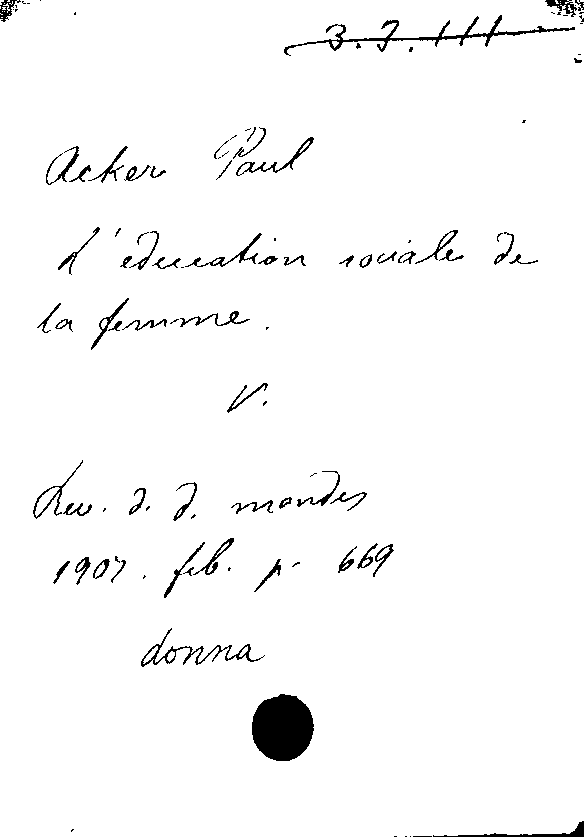 3.J.111
Acker Paul
L'éducation sociale de
la femme.
V.
Rev. d. d. mondes
1907. feb. p. 669
donna